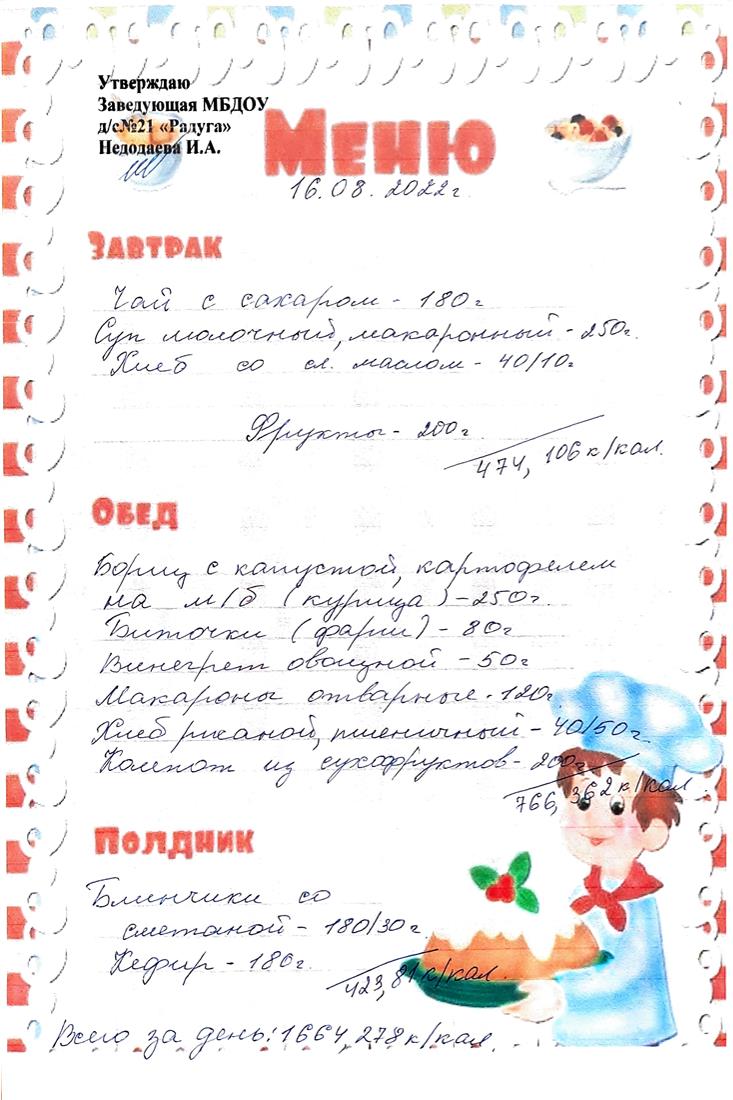 Утверждаю
Заведующая МБДОУ
д/с№21 «Радуга»
Недодаева И.А.
Меню
16.08.2022г.
Завтрак
Чай с сахаром - 180г
Суп молочный, макаронный - 250г.
Хлеб со сл. маслом - 40/10г
Фрукты - 200г
474, 106 к/кал.
Обед
Борщ с капустой, картофелем
на м/б (курица) - 250г.
Биточки (фарш) - 80г
Винегрет овощной - 50г
Макароны отварные - 120г.
Хлеб ржаной, пшеничный - 40/50г
Компот из сухофруктов - 200г
766, 362 к/кал.
Полдник
Блинчики со
сметаной - 180/30г.
Кефир - 180г.
423, 81 к/кал.
Всего за день: 1664, 278 к/кал.